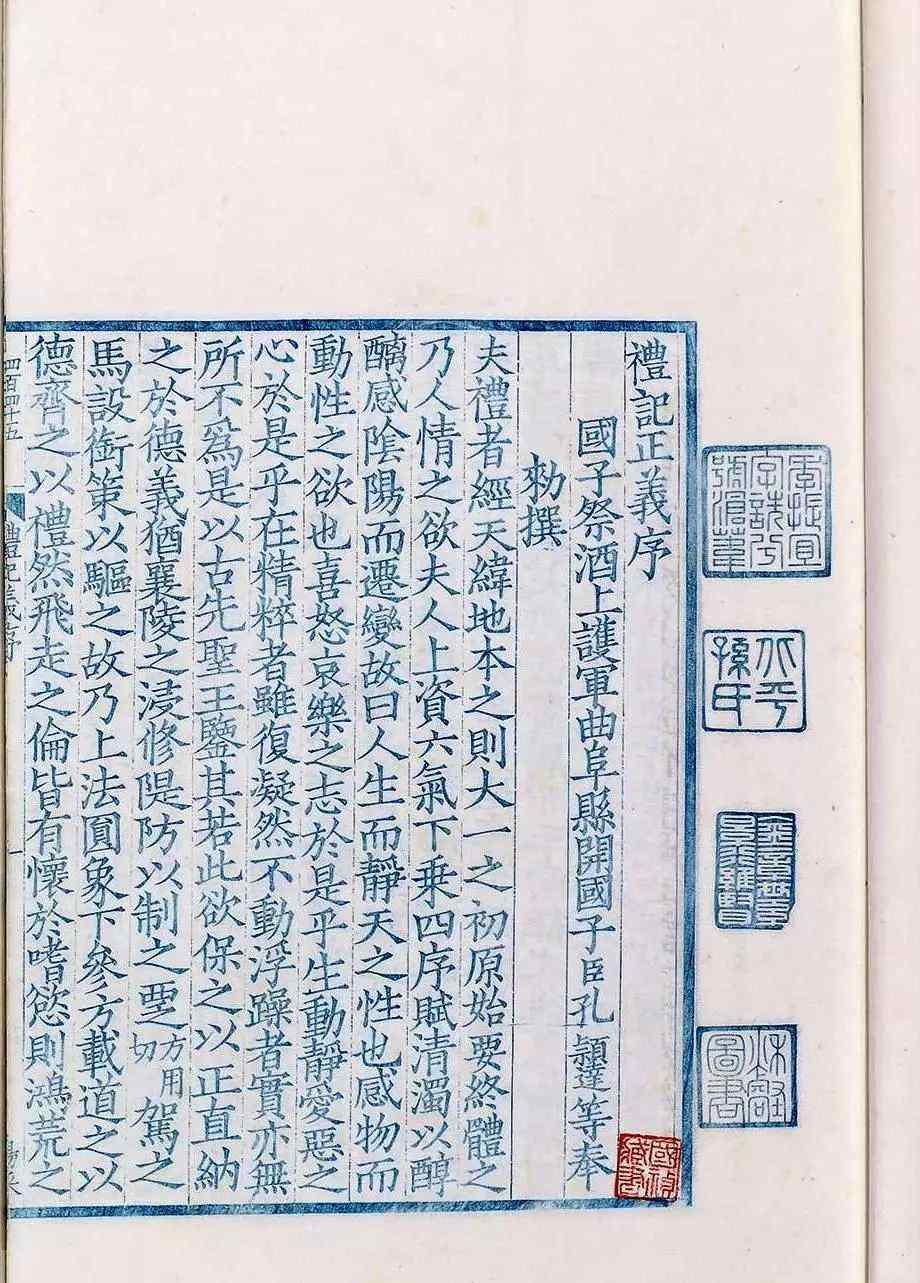 禮記正義序
國子祭酒上護軍曲阜縣開國子臣孔穎達等奉
勑撰
夫禮者經天緯地本之則大一之初原始要終體之
乃人情之欲夫人上資六氣下乗四序賦清濁以醇
醨感陰陽而遷變故曰人生而靜天之性也感物而
動性之欲也喜怒哀樂之志於是乎生動靜愛惡之
心於是乎在精粹者雖復凝然不動浮躁者實亦無
所不爲是以古先聖王鑒其若此欲保之以正直納
之於德義猶襄陵之浸修隄防以制之覂方用切駕之
馬設銜策以驅之故乃上法圓象下參方載道之以
德齊之以禮然飛走之倫皆有懷於嗜慾則鴻荒之
四百四十五
北平孫氏
秋壑圖書